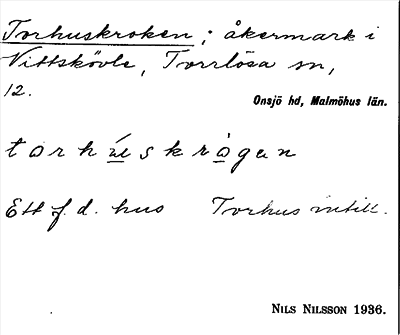 Torhuskroken; åkermark i
Vittskövle, Torrlösa sn,
12.
Onsjö hd, Malmöhus län.
torhúskrogen
Ett f. d. hus Torhus intill.
NILS NILSSON 1936.